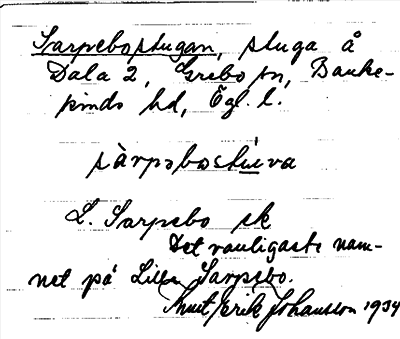 Sarpebostugan, stuga å
Dala 2, Grebo sn, Banke-
kinds hd, Ögl. l.
sàrpəbostúva
L. Sarpebo sk
Det vanligaste nam-
net på Lilla Sarpebo.
Knut Erik Johansson 1934